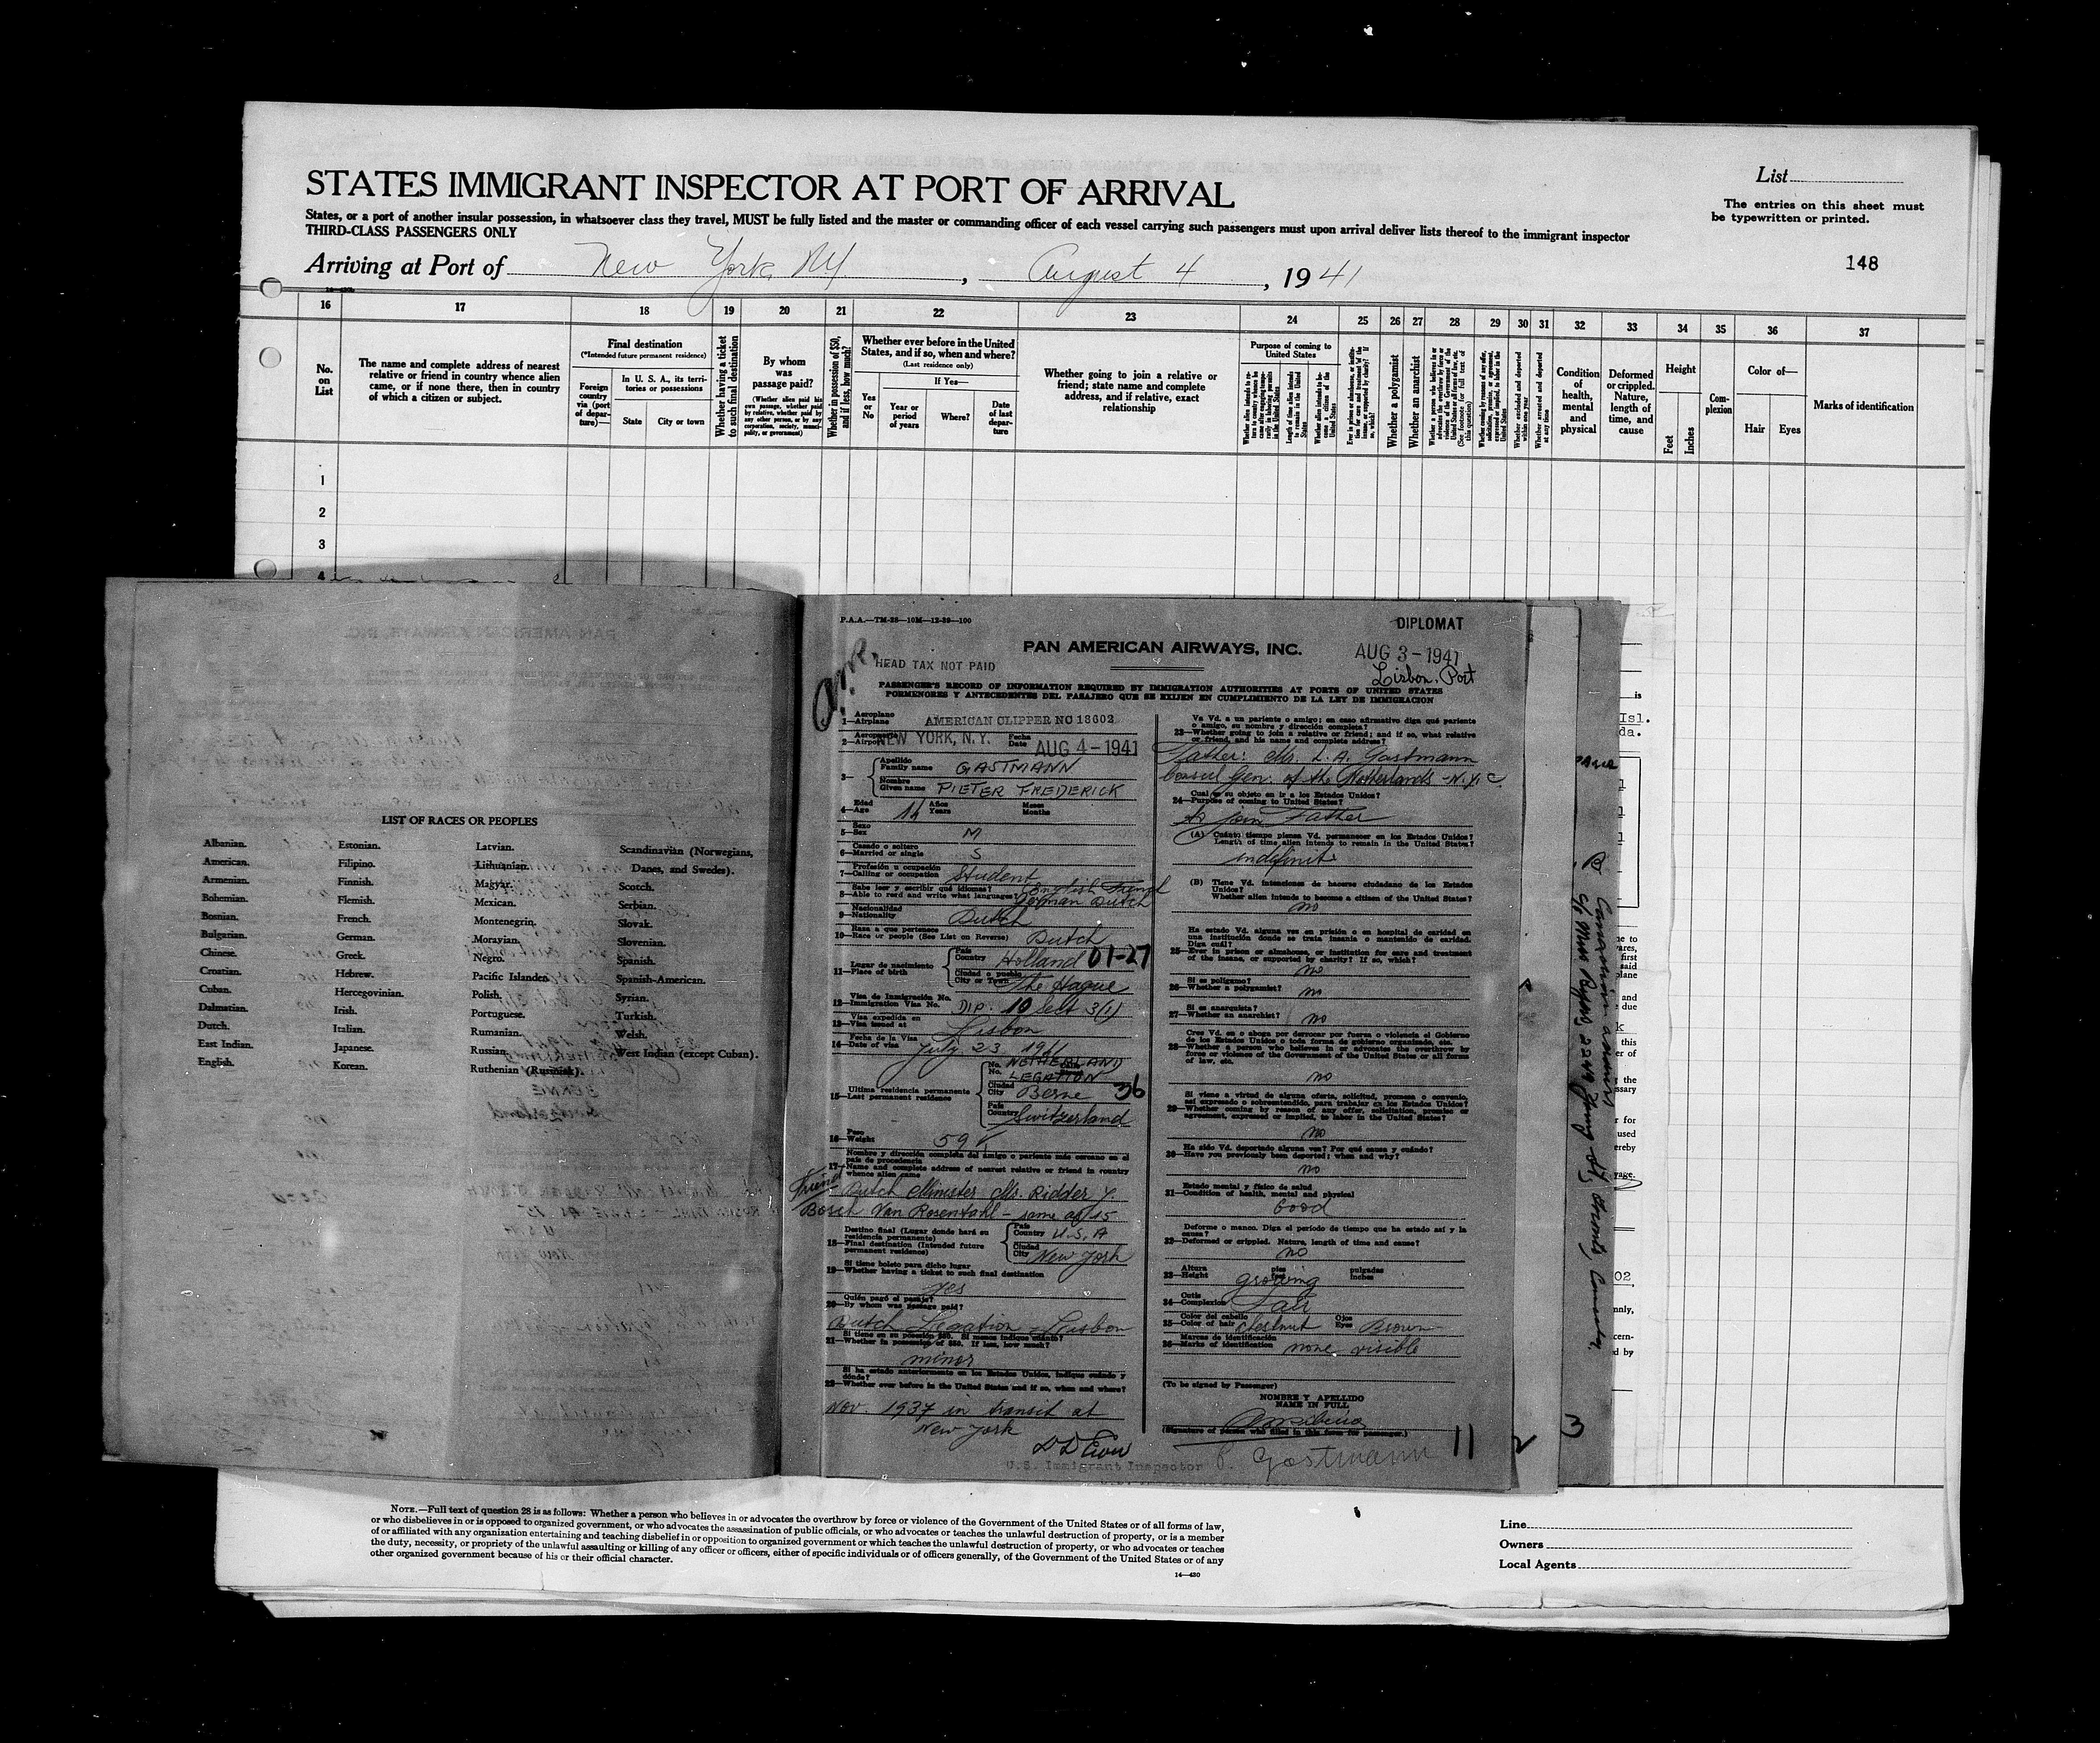 STATES IMMIGRANT INSPECTOR AT PORT OF ARRIVAL
List
The entries on this sheet must
be typewritten or printed.
States, or a port of another insular possession, in whatsoever class they travel, MUST be fully listed and the master or commanding officer of each vessel carrying such passengers must upon arrival deliver lists thereof to the immigrant inspector
THIRD-CLASS PASSENGERS ONLY
Arriving at Port of New York NY, August 4, 1941
148
16 17 18 19 20 21 22 23 24 25 26 27 28 29 30 31 32 33 34 35 36 37
No.
on
List
The name and complete address of nearest
relative or friend in country whence alien
came, or if none there, then in country
of which a citizen or subject.
Final destination
(*Intended future permanent residence)
Foreign
country
via (port
of depar-
ture)—
In U. S. A., its terri-
tories or possessions
State City or town
Whether having a ticket
to such final destination
By whom
was
passage paid?
(Whether alien paid his
own passage, whether paid
by relative, whether paid by
any other person, or by any
corporation, society, munici-
pality, or government)
Whether in possession of $50,
and if less, how much?
Whether ever before in the United
States, and if so, when and where?
(Last residence only)
Yes
or
No
If Yes—
Year or
period
of years
Where?
Date
of last
depar-
ture
Whether going to join a relative or
friend; state name and complete
address, and if relative, exact
relationship
Purpose of coming to
United States
Whether a polygamist
Whether an anarchist
Condition
of
health,
mental
and
physical
Deformed
or crippled.
Nature,
length of
time, and
cause
Height
Feet
Inches
Com-
plexion
Color of—
Hair Eyes
Marks of identification
1
2
3
4
LIST OF RACES OR PEOPLES
Albanian.
American.
Armenian.
Bohemian.
Bosnian.
Bulgarian.
Chinese.
Croatian.
Cuban.
Dalmatian.
Dutch.
East Indian.
English.
Estonian.
Filipino.
Finnish.
Flemish.
French.
German.
Greek.
Hebrew.
Hercegovinian.
Irish.
Italian.
Japanese.
Korean.
Latvian.
Lithuanian.
Magyar.
Mexican.
Montenegrin.
Moravian.
Negro.
Pacific Islander.
Polish.
Portuguese.
Rumanian.
Russian.
Ruthenian (Russniak).
Scandinavian (Norwegians,
Danes, and Swedes).
Scotch.
Serbian.
Slovak.
Slovenian.
Spanish.
Spanish-American.
Syrian.
Turkish.
Welsh.
West Indian (except Cuban).
P.A.A.—TM-28—10M—12-39—100
DIPLOMAT
PAN AMERICAN AIRWAYS, INC.
AUG 3-1941
Lisbon. Port
HEAD TAX NOT PAID
PASSENGER'S RECORD OF INFORMATION REQUIRED BY IMMIGRATION AUTHORITIES AT PORTS OF UNITED STATES
PORMENORES Y ANTECEDENTES DEL PASAJERO QUE SE EXIJEN EN CUMPLIMIENTO DE LA LEY DE IMMIGRACION
Aeroplano
1—Airplane AMERICAN CLIPPER NC 18602
Aeropuerto
2—Airport NEW YORK, N.Y. Fecha Date AUG 4-1941
3— Apellido
Family name GASTMANN
Nombre
Given name PIETER FREDERICK
Edad
4—Age 14 Años Years Meses Months
Sexo
5—Sex M
Casado o soltero
6—Married or single S
Profesión u ocupación
7—Calling or occupation Student
Sabe leer y escribir qué idiomas?
8—Able to read and write what languages? English French
German Dutch
Nacionalidad
9—Nationality Dutch
Raza a que pertenece
10—Race or people (See List on Reverse) Dutch
Lugar de nacimiento
11—Place of birth
País
Country Holland 01-27
Ciudad o pueblo
City or Town The Hague
Visa de Inmigración No.
12—Immigration Visa No. DIP. 10 Sect 3(1)
Visa expedida en
13—Visa issued at Lisbon
Fecha de la Visa
14—Date of visa July 23 1941
Ultima residencia permanente
15—Last permanent residence
No. NETHERLAND
LEGATION
Ciudad
City Berne 36
País
Country Switzerland
Peso
16—Weight 59 K
Nombre y dirección completa del amigo o pariente más cercano en el
país de procedencia
17—Name and complete address of nearest relative or friend in country
whence alien came
Friend Dutch Minister Mr. Ridder v.
Bosch Van Rosenthahl - same as 15
Destino final (Lugar donde hará su
residencia permanente)
18—Final destination (Intended future
permanent residence)
País
Country U.S.A
Ciudad
City New York
Si tiene boleto para dicho lugar
19—Whether having a ticket to such final destination
yes
Quién pagó el pasaje?
20—By whom was passage paid?
Dutch Legation - Lisbon
Si tiene en su posesión $50. Si menos indique cuánto?
21—Whether in possession of $50. If less, how much?
minor
Si ha estado anteriormente en los Estados Unidos, indique cuándo y
dónde?
22—Whether ever before in the United States and if so, when and where?
Nov. 1937 in transit at
New York
U.S. Immigrant Inspector
Va Vd. a un pariente o amigo; en caso afirmativo diga qué pariente
o amigo, su nombre y dirección completa?
23—Whether going to join a relative or friend; and if so, what relative
or friend, and his name and complete address?
Father: Mr. L. A. Gastmann
Consul Gen. of the Netherlands - N.Y.C.
Cual es su objeto en ir a los Estados Unidos?
24—Purpose of coming to United States?
to join Father
(A) Cuánto tiempo piensa Vd. permanecer en los Estados Unidos?
Length of time alien intends to remain in the United States?
indefinite
(B) Tiene Vd. intenciones de hacerse ciudadano de los Estados
Unidos?
Whether alien intends to become a citizen of the United States?
no
Ha estado Vd. alguna vez en prisión o en hospital de caridad en
una institución donde se trata insania o mantenido de caridad.
Diga cuál?
25—Ever in prison or almshouse, or institution for care and treatment
of the insane, or supported by charity? If so, which?
no
Si es polígamo?
26—Whether a polygamist?
no
Si es anarquista?
27—Whether an anarchist?
no
Cree Vd. en o aboga por derrocar por fuerza o violencia el Gobierno
de los Estados Unidos o toda forma de gobierno organizado, etc.
28—Whether a person who believes in or advocates the overthrow by
force or violence of the Government of the United States or all forms
of law, etc.
no
Si viene a virtud de alguna oferta, solicitud, promesa o convenio,
así expresado o sobreentendido, para trabajar en los Estados Unidos?
29—Whether coming by reason of any offer, solicitation, promise or
agreement, expressed or implied, to labor in the United States?
no
Ha sido Vd. deportado alguna vez? Por qué causa y cuándo?
30—Have you previously been deported; when and why?
no
Estado mental y físico de salud
31—Condition of health, mental and physical
Good
Deforme o manco. Diga el período de tiempo que ha estado así y la
causa?
32—Deformed or crippled. Nature, length of time and cause?
no
Altura pies pulgadas
33—Height feet inches
growing
Cutis
34—Complexion Fair
Color del cabello Ojos
35—Color of hair chestnut Eyes Brown
Marcas de identificación
36—Marks of identification none visible
(To be signed by Passenger)
NOMBRE Y APELLIDO
NAME IN FULL
(Signature of person who filled in this form for passenger.)
P. Gastmann 11
2
3
Toronto, Canada
NOTE.—Full text of question 28 is as follows: Whether a person who believes in or advocates the overthrow by force or violence of the Government of the United States or of all forms of law,
or who disbelieves in or is opposed to organized government, or who advocates the assassination of public officials, or who advocates or teaches the unlawful destruction of property, or is a member
of or affiliated with any organization entertaining and teaching disbelief in or opposition to organized government or which teaches the unlawful destruction of property, or who advocates or teaches
the duty, necessity, or propriety of the unlawful assaulting or killing of any officer or officers, either of specific individuals or of officers generally, of the Government of the United States or of any
other organized government because of his or their official character.
14—430
Line
Owners
Local Agents